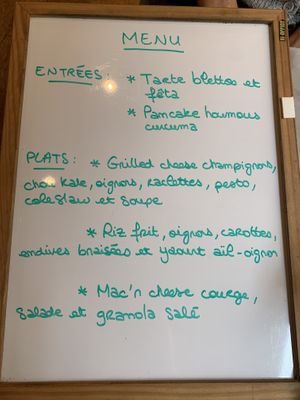 MENU
ENTRÉES : * Tarte blettes et
fêta
* Pancake houmous
curcuma
PLATS : * Grilled cheese champignons,
chou kale, oignons, raclettes, pesto,
coleslaw et soupe
* Riz frit, oignons, carottes,
endives braisées et yaourt aïl-oignon
* Mac'n cheese courge,
salade et granola salé